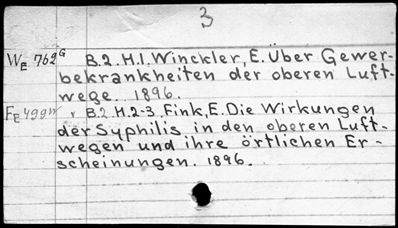 3
WE 762G B.2.H.1. Winckler, E. Über Gewer-
bekrankheiten der oberen Luft-
wege. 1896.
FE 499m v B.2 H.2-3. Fink, E. Die Wirkungen
der Syphilis in den oberen Luft-
wegen und ihre örtlichen Er-
scheinungen. 1896.